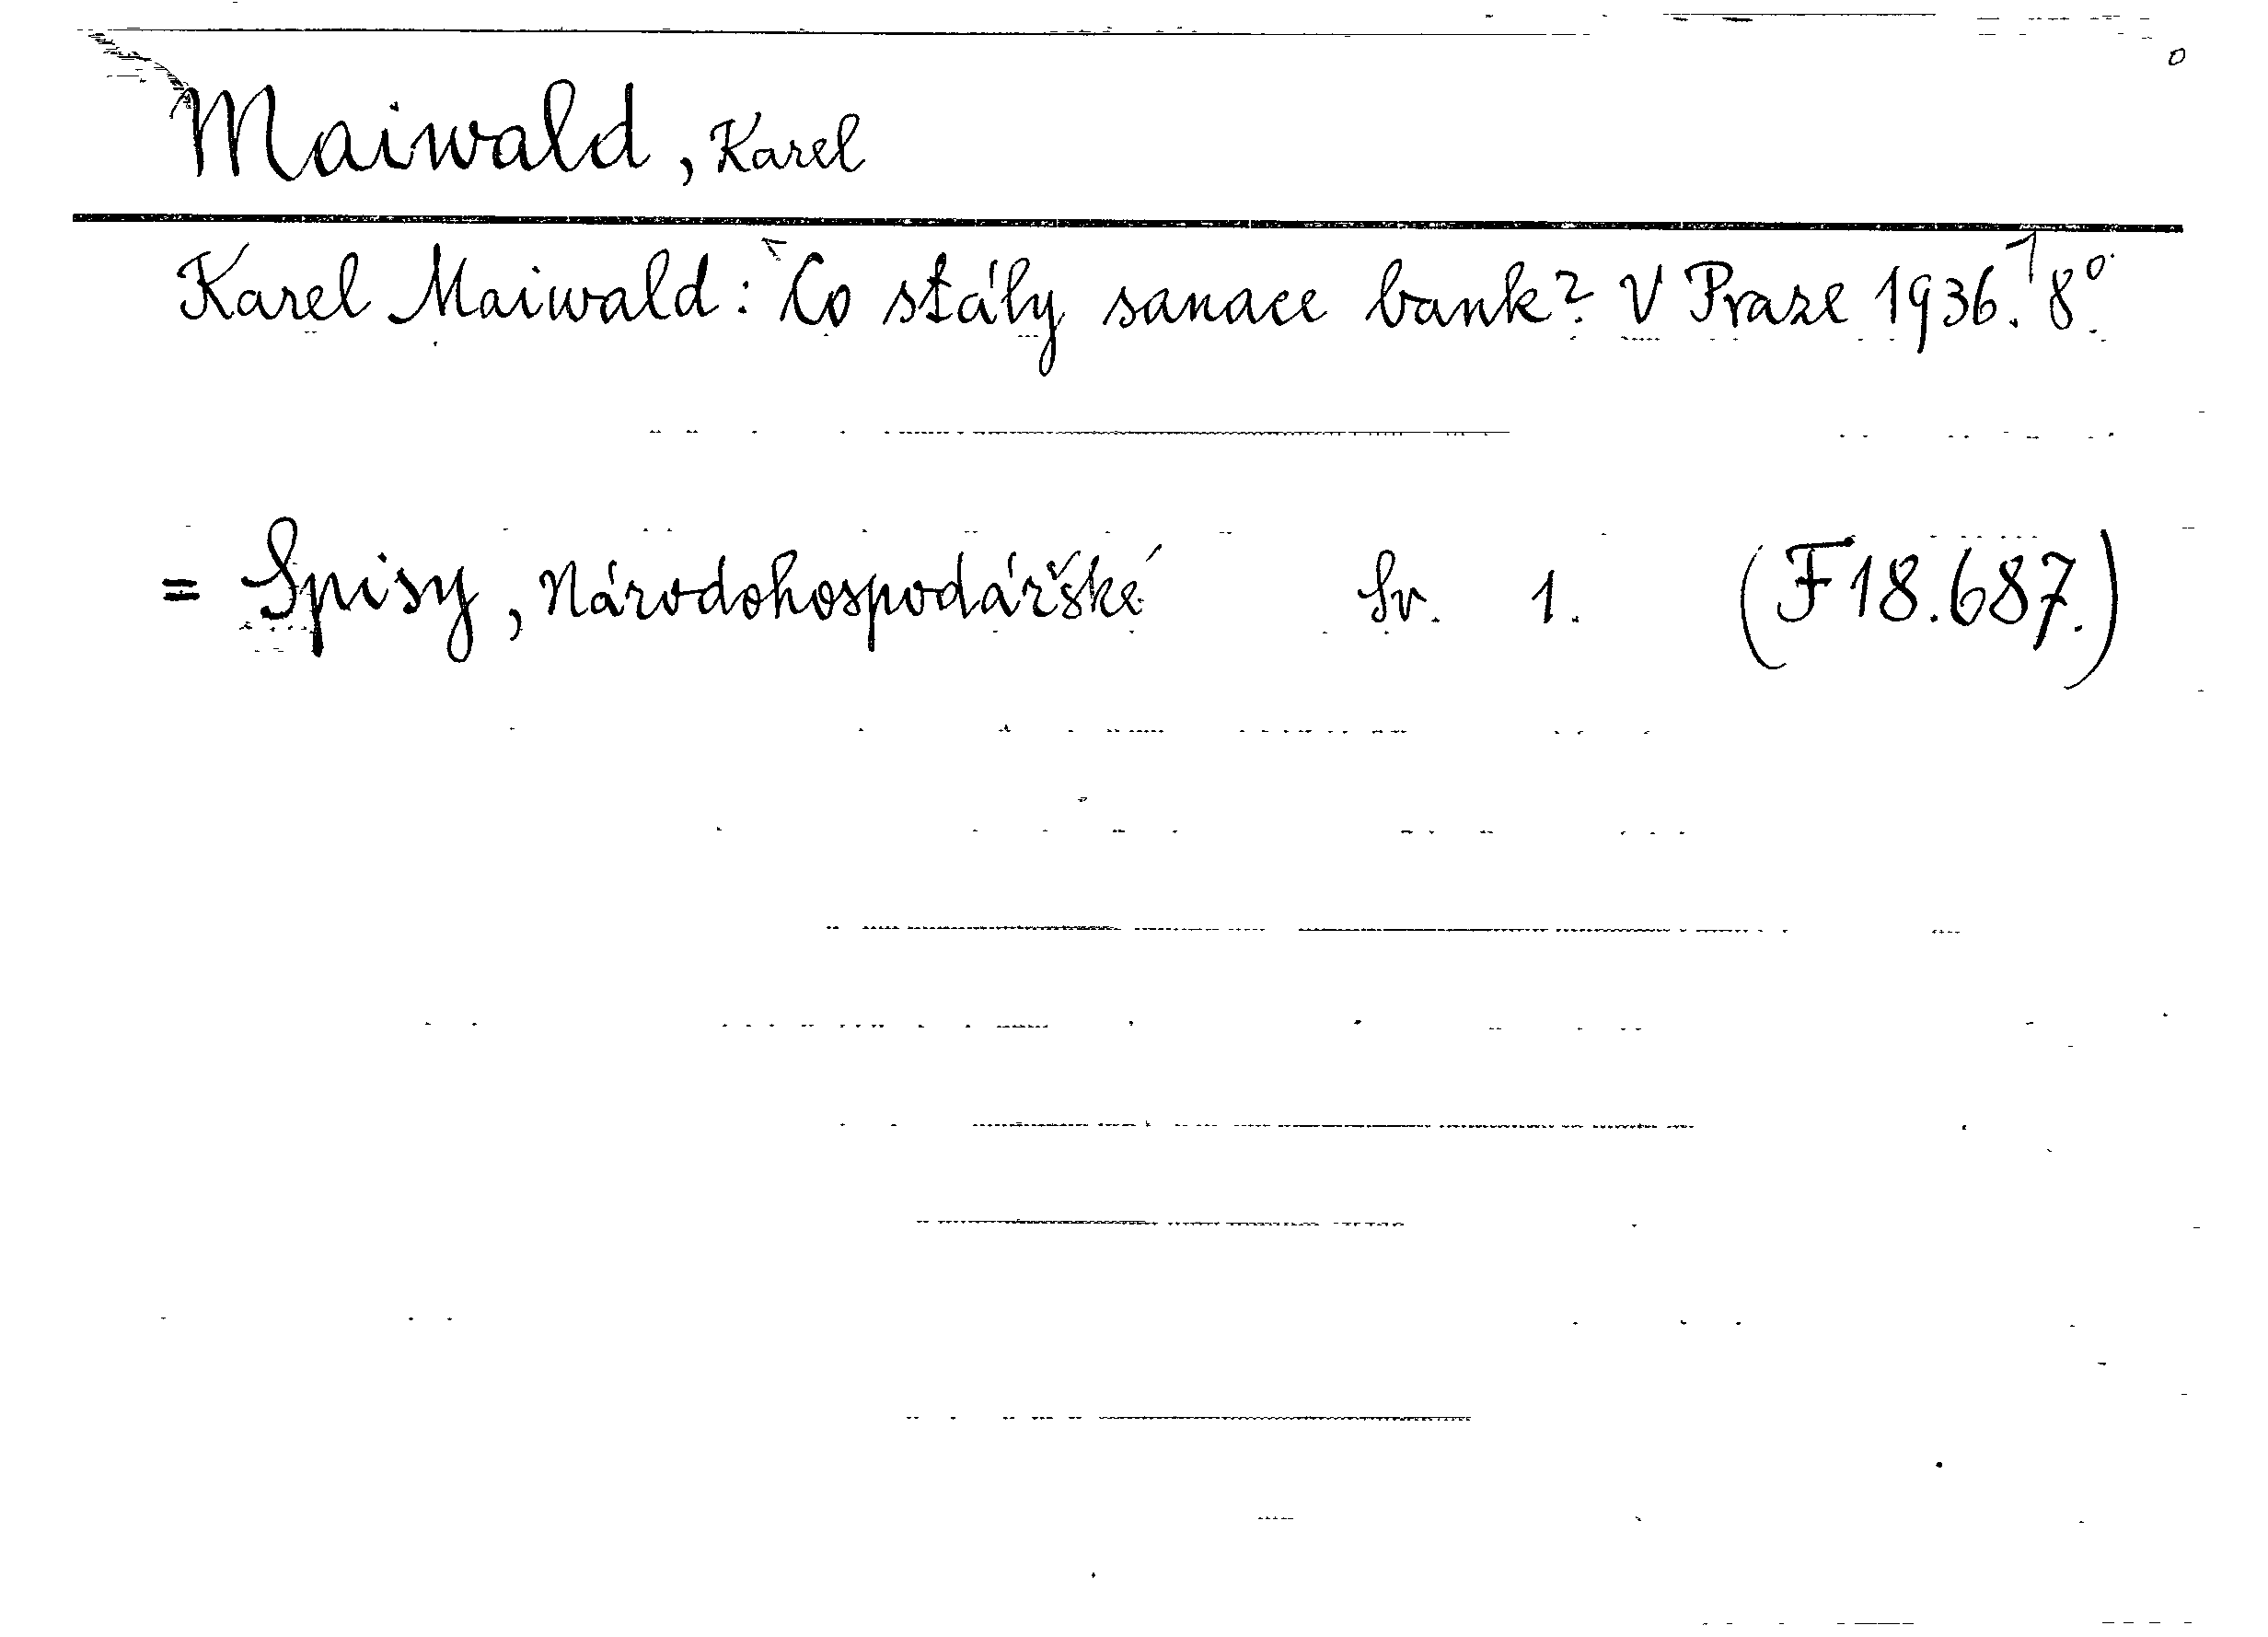 Maiwald, Karel
Karel Maiwald: Co stály sanace bank? V Praze 1936. 8°.
= Spisy, Národohospodářské Sv. 1. (F18.687.)